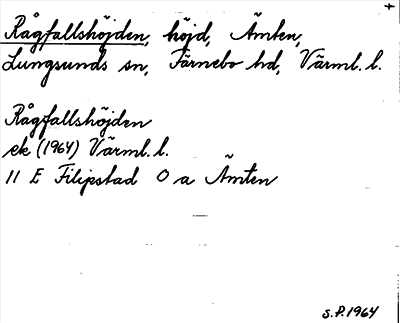 +
Rågfallshöjden, höjd, Ämten,
Lungsunds sn, Färnebo hd, Värml. l.
Rågfallshöjden
ek (1964) Värml. l.
11 E Filipstad O a Ämten
S.P. 1964